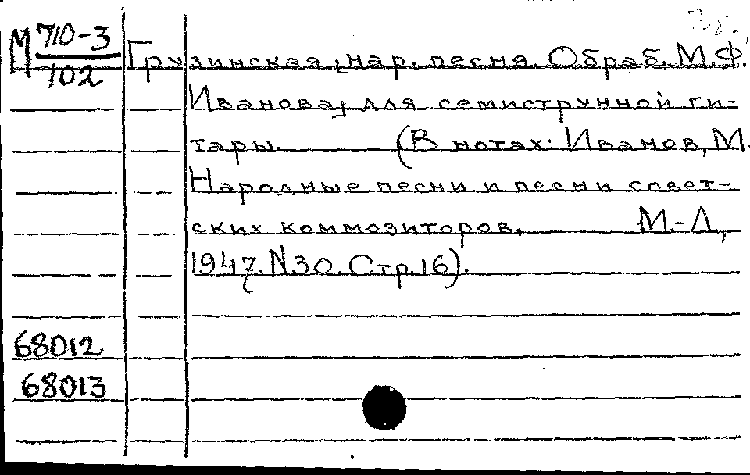 М 710-3
102
Грузинская нар. песня. Обраб. М.Ф.
Иванова, для семиструнной ги-
тары. (В нотах: Иванов, М.
Народные песни и песни совет-
ских композиторов. М.-Л.,
1947. N30. Стр. 16).
68012
68013